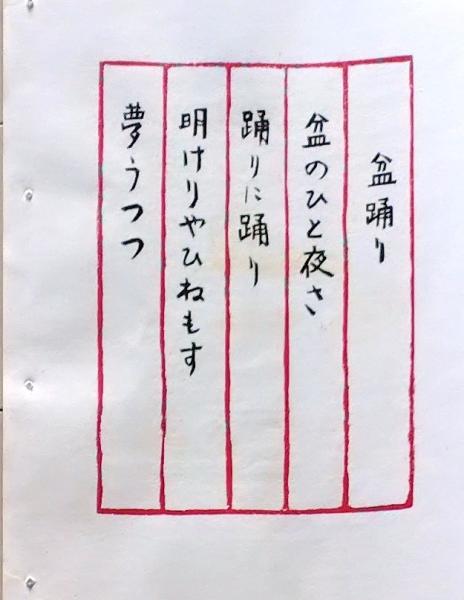 盆踊り
盆のひと夜さ
踊りに踊り
明けりやひねもす
夢うつつ